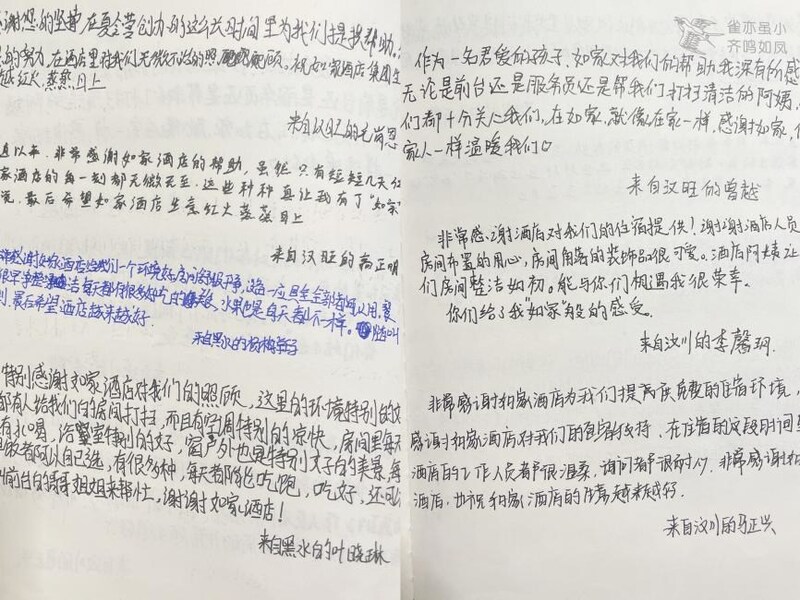 谢您的坚持,在夏令营创办的这么长时间里为我们提供帮助,
的努力,在酒店里对我们无微不至的照顾,祝如家酒店集团生
越红火,蒸蒸日上
来自汉旺的
这以年,非常感谢如家酒店的帮助,虽然只有短短几天,但
家酒店的每一刻都无微不至,这些种种真让我有了"如家"
觉,最后希望如家酒店生意红火蒸蒸日上
来自汉旺的高正明
最后希望酒店越来越好.
来自黑水的
特别感谢如家酒店对我们的照顾,这里的环境特别的好
都有人给我们的房间打扫,而且有空调特别的凉快,房间里每天
有水喝,浴室特别的好,窗户外也是特别好的美景,每
早饭都可以自己选,有很多种,每天都能吃饱,吃好,还可以
叫前台的哥哥姐姐来帮忙,谢谢如家酒店!
来自黑水的叶晓琳
雀亦虽小
齐鸣如凤
作为一名君爱的孩子,如家对我们的帮助我深有所感
无论是前台还是服务员还是帮我们打扫清洁的阿姨,
们都十分关心我们,在如家,就像在家一样,感谢如家
家人一样温暖我们♡
来自汉旺的曾越
非常感谢酒店对我们的住宿提供!谢谢酒店人员
房间布置的用心,房间角落的装饰品很可爱。酒店阿姨让
们房间整洁如初。能与你们相遇我很荣幸。
你们给了我"如家"般的感受。
来自汶川的李馨玥.
非常感谢如家酒店为我们提高质免费的住宿环境,
感谢如家酒店对我们的支持,在住宿的这段时间里
酒店的工作人员都很温柔,询问都很耐心,非常感谢如
酒店,也祝如家酒店的生意越来越好.
来自汶川的马正兴